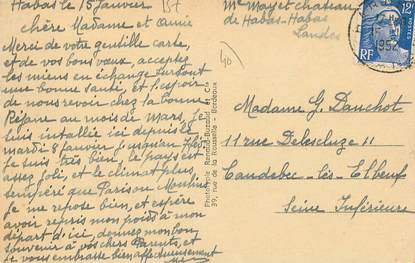 Habas le 15 janvier
chère Madame et amie
Merci de votre gentille carte,
et de vos bons vœux, acceptez
les miens en échange surtout
une bonne santé, et l'espoir
de nous revoir chez la bonne
Réjane au mois de mars, je
suis installée ici depuis le
mardi 8 janvier jusqu'au
je suis très bien, le pays est
assez joli, et le climat plus
tempéré que Paris ou
je me repose bien, et espère
avoir repris mon poids à mon
départ d'ici, donnez mon bon
souvenir à vos chers Parents, et
je vous embrasse bien affectueusement
157
40
Mme May et chateau
de Habas-Habas
Landes
12F
RF
1952
Phototypie
39, rue de la Rousselle - Bordeaux
Madame G. Dauchot
11 rue Delescluze 11
Caudebec-lès-Elbeuf
Seine Inférieure